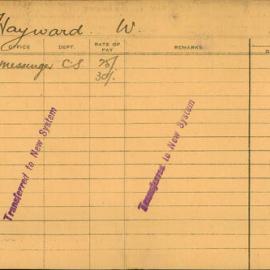 Hayward. W.
OFFICE DEPT. RATE OF PAY REMARKS.
Messenger C.S 25/
30/.
Transferred to New System
Transferred to New System